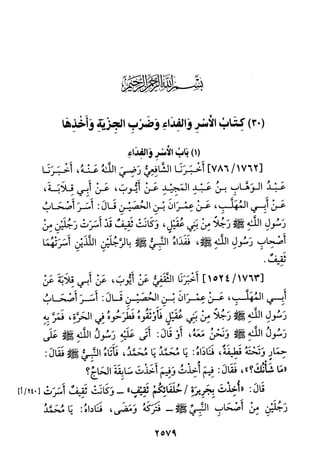 بسم الله الرحمن الرحيم
(٣٠) كِتَابُ الْأَسْرِ وَالْفِدَاءِ وَضَرْبِ الْجِزْيَةِ وَأَخْذِهَا
(١) بَابُ الْأَسْرِ وَالْفِدَاءِ
[٧٨٦/١٧٦٢] أَخْبَرَنَا الشَّافِعِيُّ رَضِيَ اللَّهُ عَنْهُ، أَخْبَرَنَا
عَبْدُ الوَهَّابِ بنُ عَبْدِ المَجِيدِ عَنْ أَيُّوبَ، عَنْ أَبِي قِلَابَةَ،
عَنْ أَبِي المُهَلَّبِ، عَنْ عِمْرَانَ بْنِ الحُصَيْنِ قَالَ: أَسَرَ أَصْحَابُ
رَسُولِ اللَّهِ ﷺ رَجُلًا مِنْ بَنِي عُقَيْلٍ، وَكَانَتْ ثَقِيفُ قَدْ أَسَرَتْ رَجُلَيْنِ مِنْ
أَصْحَابِ رَسُولِ اللَّهِ ﷺ، فَفَدَاهُ النَّبِيُّ ﷺ بِالرَّجُلَيْنِ اللَّذَيْنِ أَسَرَتْهُمَا
ثَقِيفُ.
[١٥٢٤/١٧٦٣] أَخْبَرَنَا الثَّقَفِيُّ عَنْ أَيُّوبَ، عَنْ أَبِي قِلَابَةَ عَنْ
أَبِي المُهَلَّبِ، عَنْ عِمْرَانَ بْنِ الحُصَيْنِ قَالَ: أَسَرَ أَصْحَابُ
رَسُولِ اللَّهِ ﷺ رَجُلًا مِنْ بَنِي عُقَيْلٍ فَأَوْثَقُوهُ فَطَرَحُوهُ فِي الحَرَّةِ، فَمَرَّ بِهِ
رَسُولُ اللَّهِ ﷺ وَنَحْنُ مَعَهُ، أَوْ قَالَ: أَتَى عَلَيْهِ رَسُولُ اللَّهِ ﷺ عَلَى
حِمَارٍ وَتَحْتَهُ قَطِيفَةٌ، فَنَادَاهُ: يَا مُحَمَّدُ يَا مُحَمَّدُ، فَأَتَاهُ النَّبِيُّ ﷺ فَقَالَ:
«مَا شَأْنُكَ؟»، فَقَالَ: فِيمَ أُخِذْتُ وَفِيمَ أَخَذْتَ سَابِقَةَ الحَاجِّ؟
قَالَ: «أُخِذْتَ بِجَرِيرَةِ / حُلَفَائِكُمْ ثَقِيفٍ» – وَكَانَتْ ثَقِيفُ أَسَرَتْ [٢٤٠/أ]
رَجُلَيْنِ مِنْ أَصْحَابِ النَّبِيِّ ﷺ – فَتَرَكَهُ وَمَضَى، فَنَادَاهُ: يَا مُحَمَّدُ
٢٥٧٩